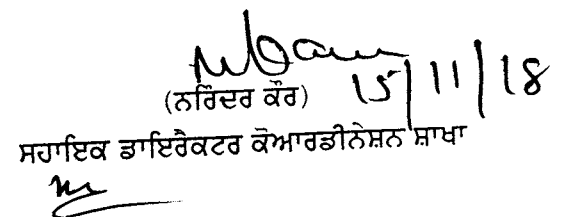 15/11/18
(ਨਰਿੰਦਰ ਕੌਰ)
ਸਹਾਇਕ ਡਾਇਰੈਕਟਰ ਕੋਆਰਡੀਨੇਸ਼ਨ ਸ਼ਾਖਾ